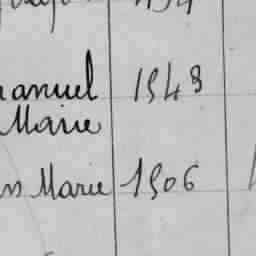 anuel 1948
Marie
ns Marie 1906